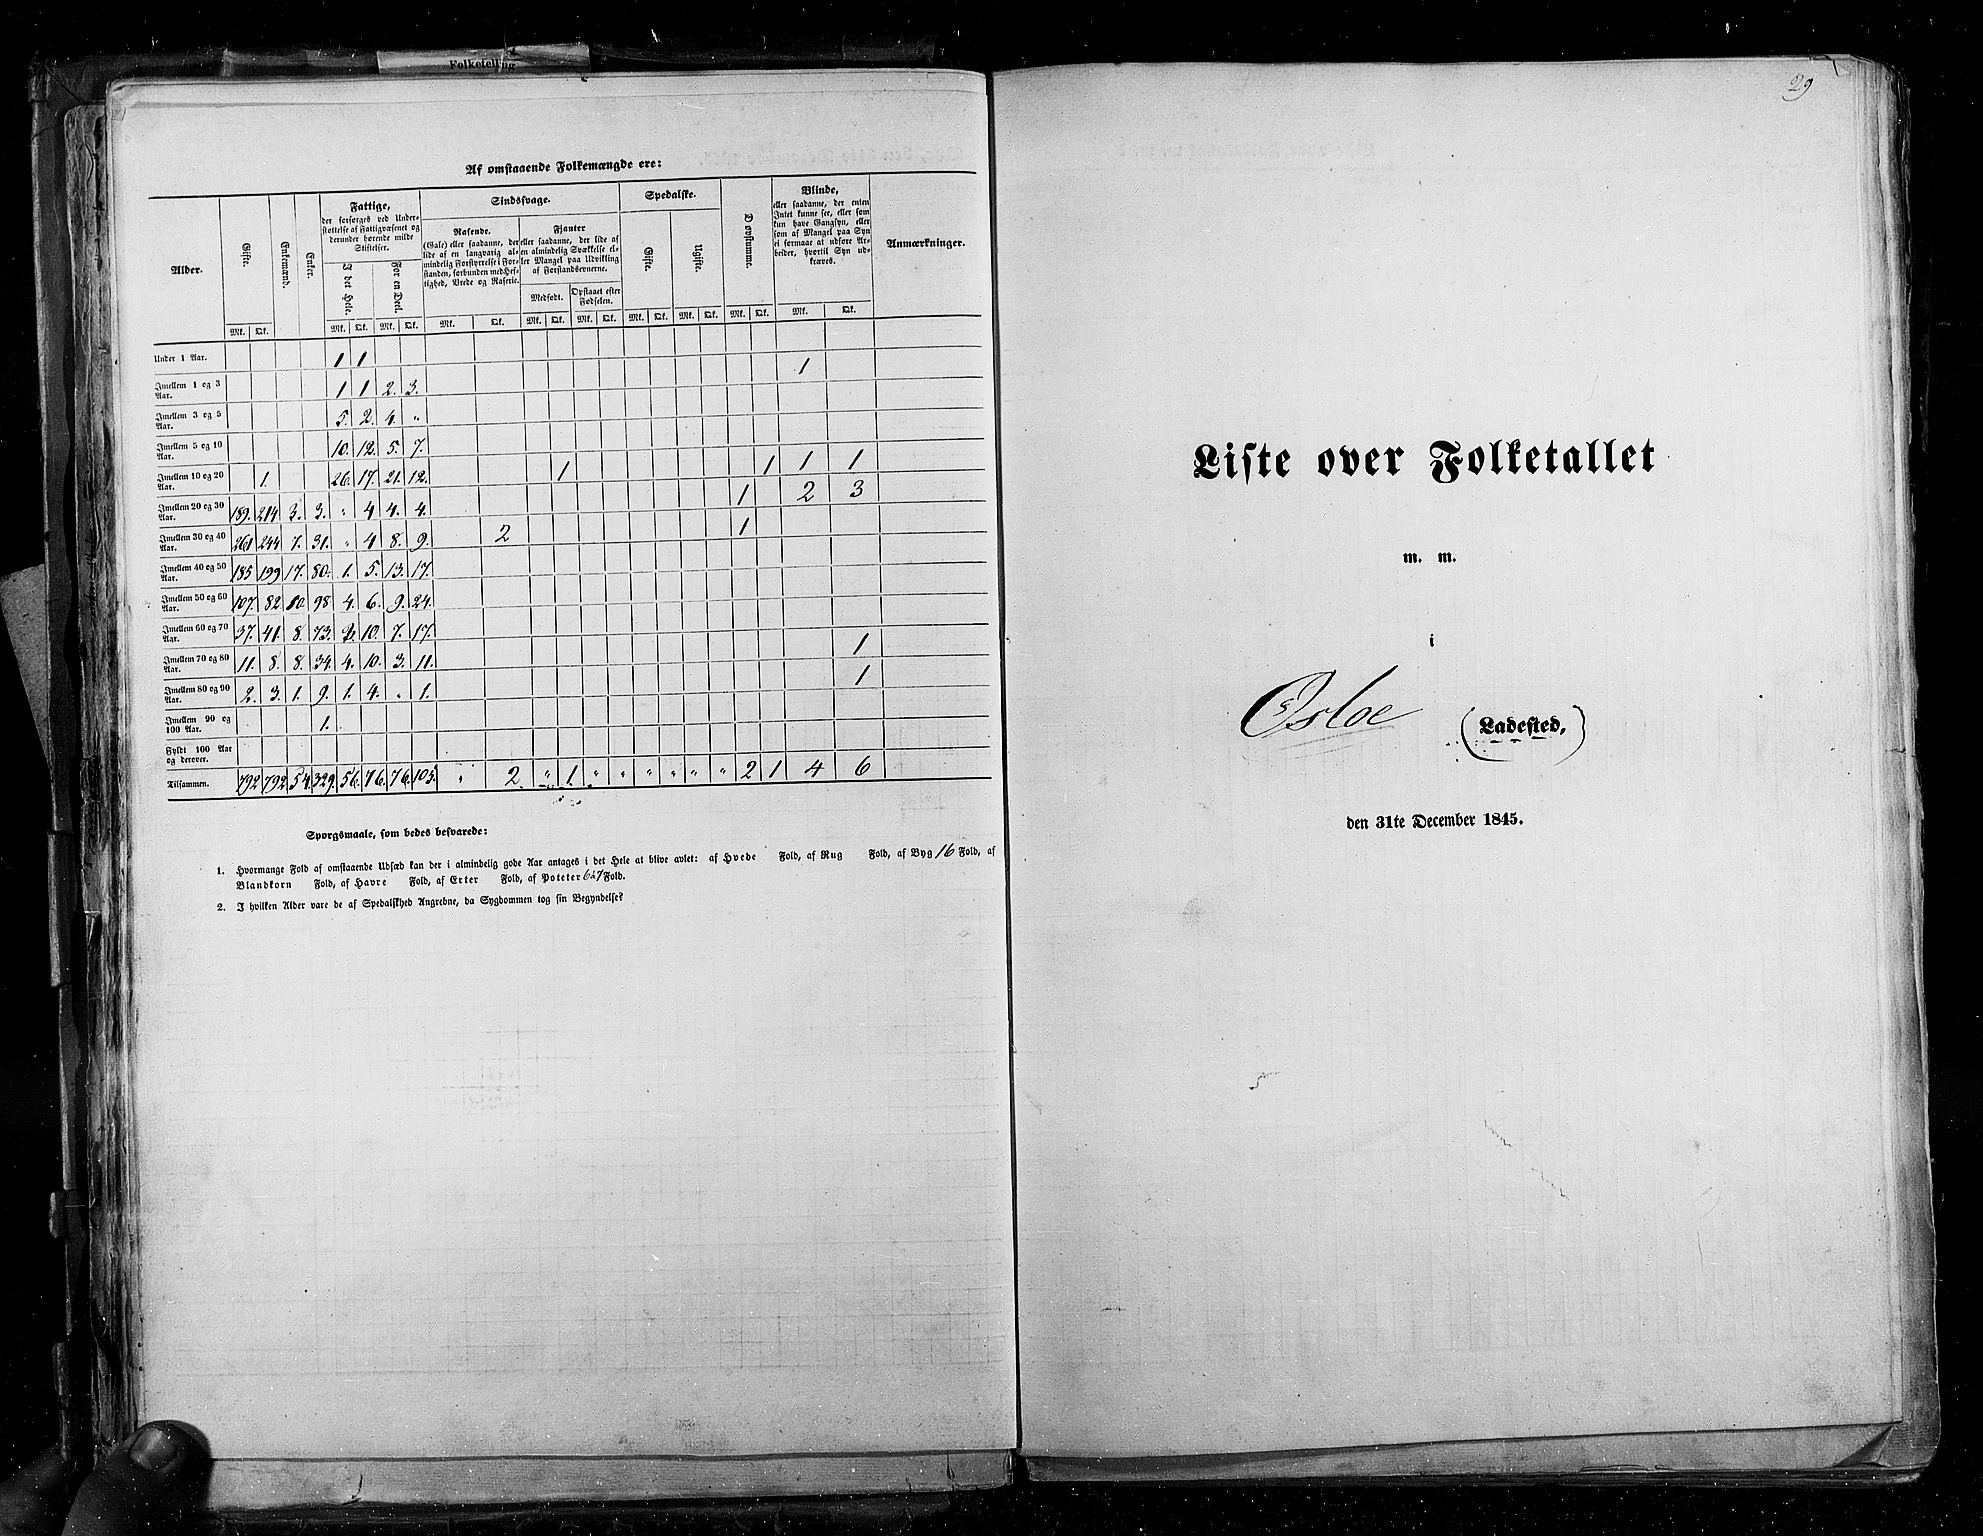 Folketelling
Af omstaaende Folkemængde ere:
Alder. | Gifte. | Enkemænd. | Enker. | Fattige, | Sindssvage. | Spedalske. | Døvstumme. | Blinde, | Anmærkninger.
der forsørges ved Under-
støttelse af Fattigvæsenet og
derunder hørende milde
Stiftelser.
I det Hele. | For en Deel.
Rasende.
(Gale) eller saadanne, der
lide af en langvarig al-
mindelig Forstyrrelse i For-
standen, forbunden med Hef-
tighed, Vrede og Raserie.
Fjanter
eller saadanne, der lide af
en almindelig Svækkelse el-
ler Mangel paa Udvikling
af Forstandsevnerne.
Medfødt. | Opstaaet efter
Fødselen.
Gifte. | Ugifte.
eller saadanne, der enten
Intet kunne see, eller som
kun have Gangsyn, eller
som af Mangel paa Syn
ei formaae at udføre Ar-
beider, hvortil Syn ud-
kræves.
Mk. Qk. Mk. Qk. Mk. Qk. Mk. Qk. Mk. Qk. Mk. Qk. Mk. Qk. Mk. Qk. Mk. Qk. Mk. Qk.
Under 1 Aar. 1 1
Imellem 1 og 3 Aar. 1 1 2. 3. 1
Imellem 3 og 5 Aar. 5. 2. 4. "
Imellem 5 og 10 Aar. 10. 12. 5. 7.
Imellem 10 og 20 Aar. 1. 26. 17. 21. 12. 1 1 1 1
Imellem 20 og 30 Aar. 189. 214 3. 3. " 4 4. 4. 1 2 3
Imellem 30 og 40 Aar. 261 244 7. 31. " 4 8. 9. 2 1
Imellem 40 og 50 Aar. 185 199 17. 80. 1. 5. 13. 17.
Imellem 50 og 60 Aar. 107. 82. 10. 98 4. 6. 9. 24.
Imellem 60 og 70 Aar. 37. 41. 8. 73. 10. 7. 17.
Imellem 70 og 80 Aar. 11. 8. 8. 34. 4. 10. 3. 11. 1
Imellem 80 og 90 Aar. 2. 3. 1. 9. 1. 4. " 1. 1
Imellem 90 og 100 Aar. 1.
Fyldt 100 Aar og derover.
Tilsammen. 792 792 54. 329. 56. 76. 76. 105. " 2 " 1. " " " " " " 2 1 4 6
Spørgsmaale, som bedes besvarede:
1. Hvormange Fold af omstaaende Udsæd kan der i almindelig gode Aar antages i det Hele at blive avlet: af Hvede Fold, af Rug Fold, af Byg 16 Fold, af
Blandkorn Fold, af Havre Fold, af Erter Fold, af Poteter 6 à 7 Fold.
2. I hvilken Alder vare de af Spedalskhed Angrebne, da Sygdommen tog sin Begyndelse?
29
Liste over Folketallet
m. m.
i
Osloe (Ladested,)
den 31te December 1845.